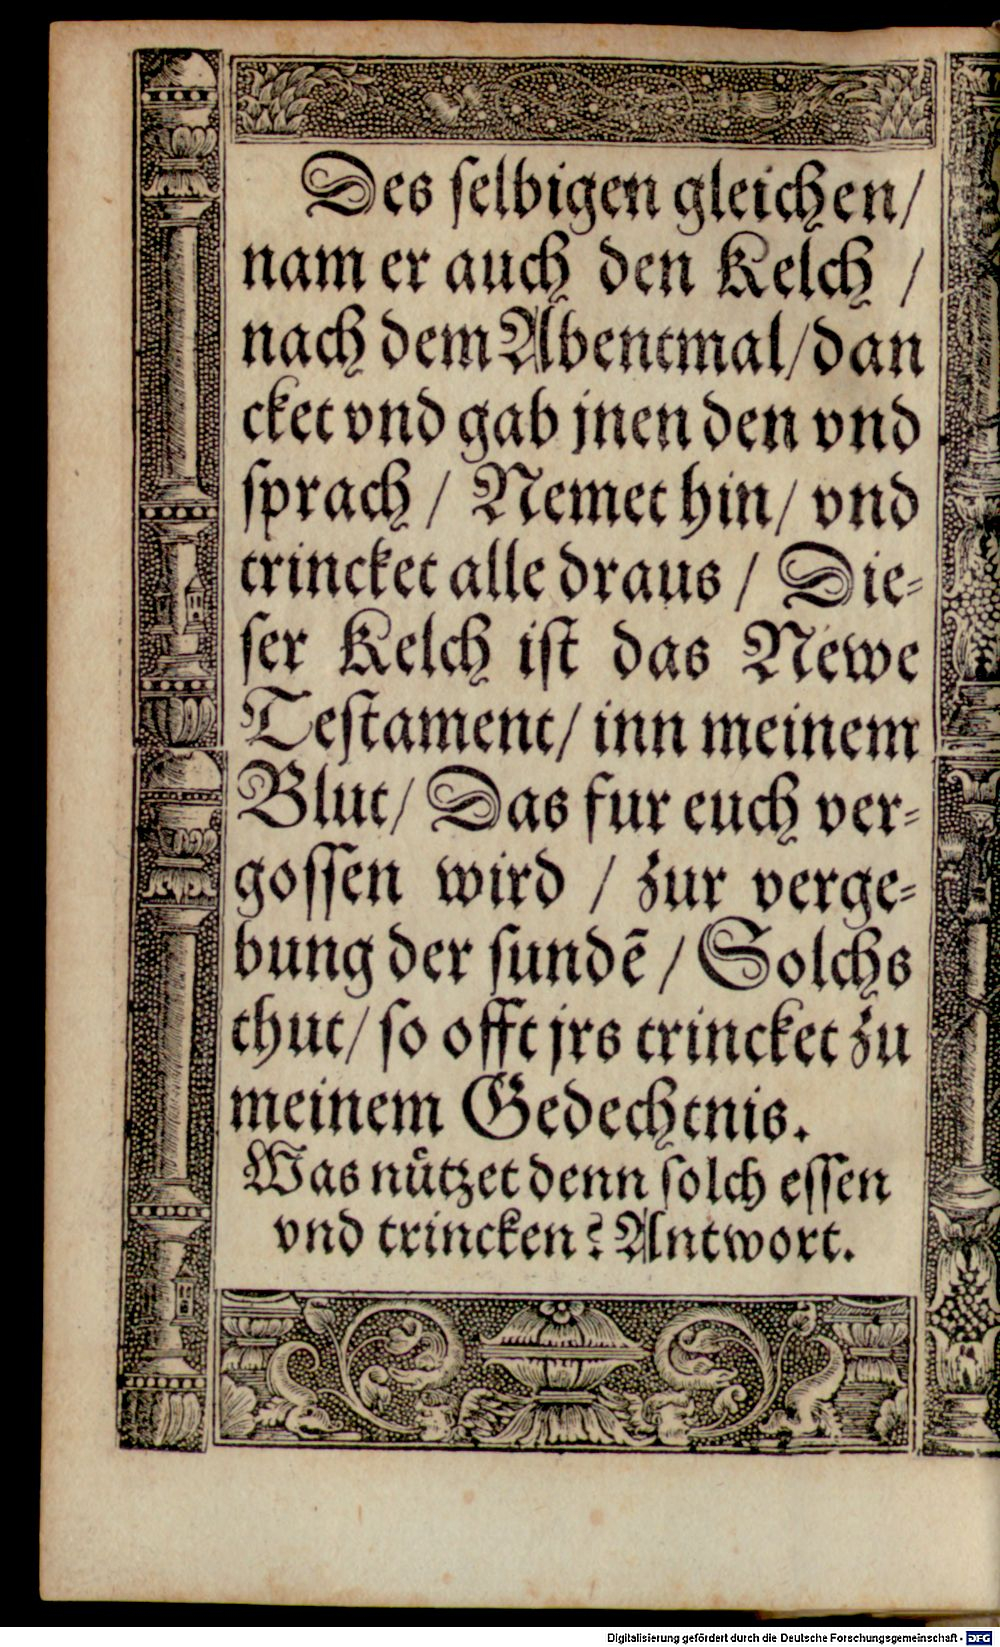 Des selbigen gleichen/
nam er auch den Kelch /
nach dem Abentmal/dan
cket vnd gab jnen den vnd
sprach / Nemet hin/ vnd
trincket alle draus / Die-
ser Kelch ist das Newe
Testament/ inn meinem
Blut/ Das fur euch ver-
gossen wird / zur verge-
bung der sundē / Solchs
thut/ so offt jrs trincket zu
meinem Gedechtnis.
Was nützet denn solch essen
vnd trincken? Antwort.
Digitalisierung gefördert durch die Deutsche Forschungsgemeinschaft - DFG